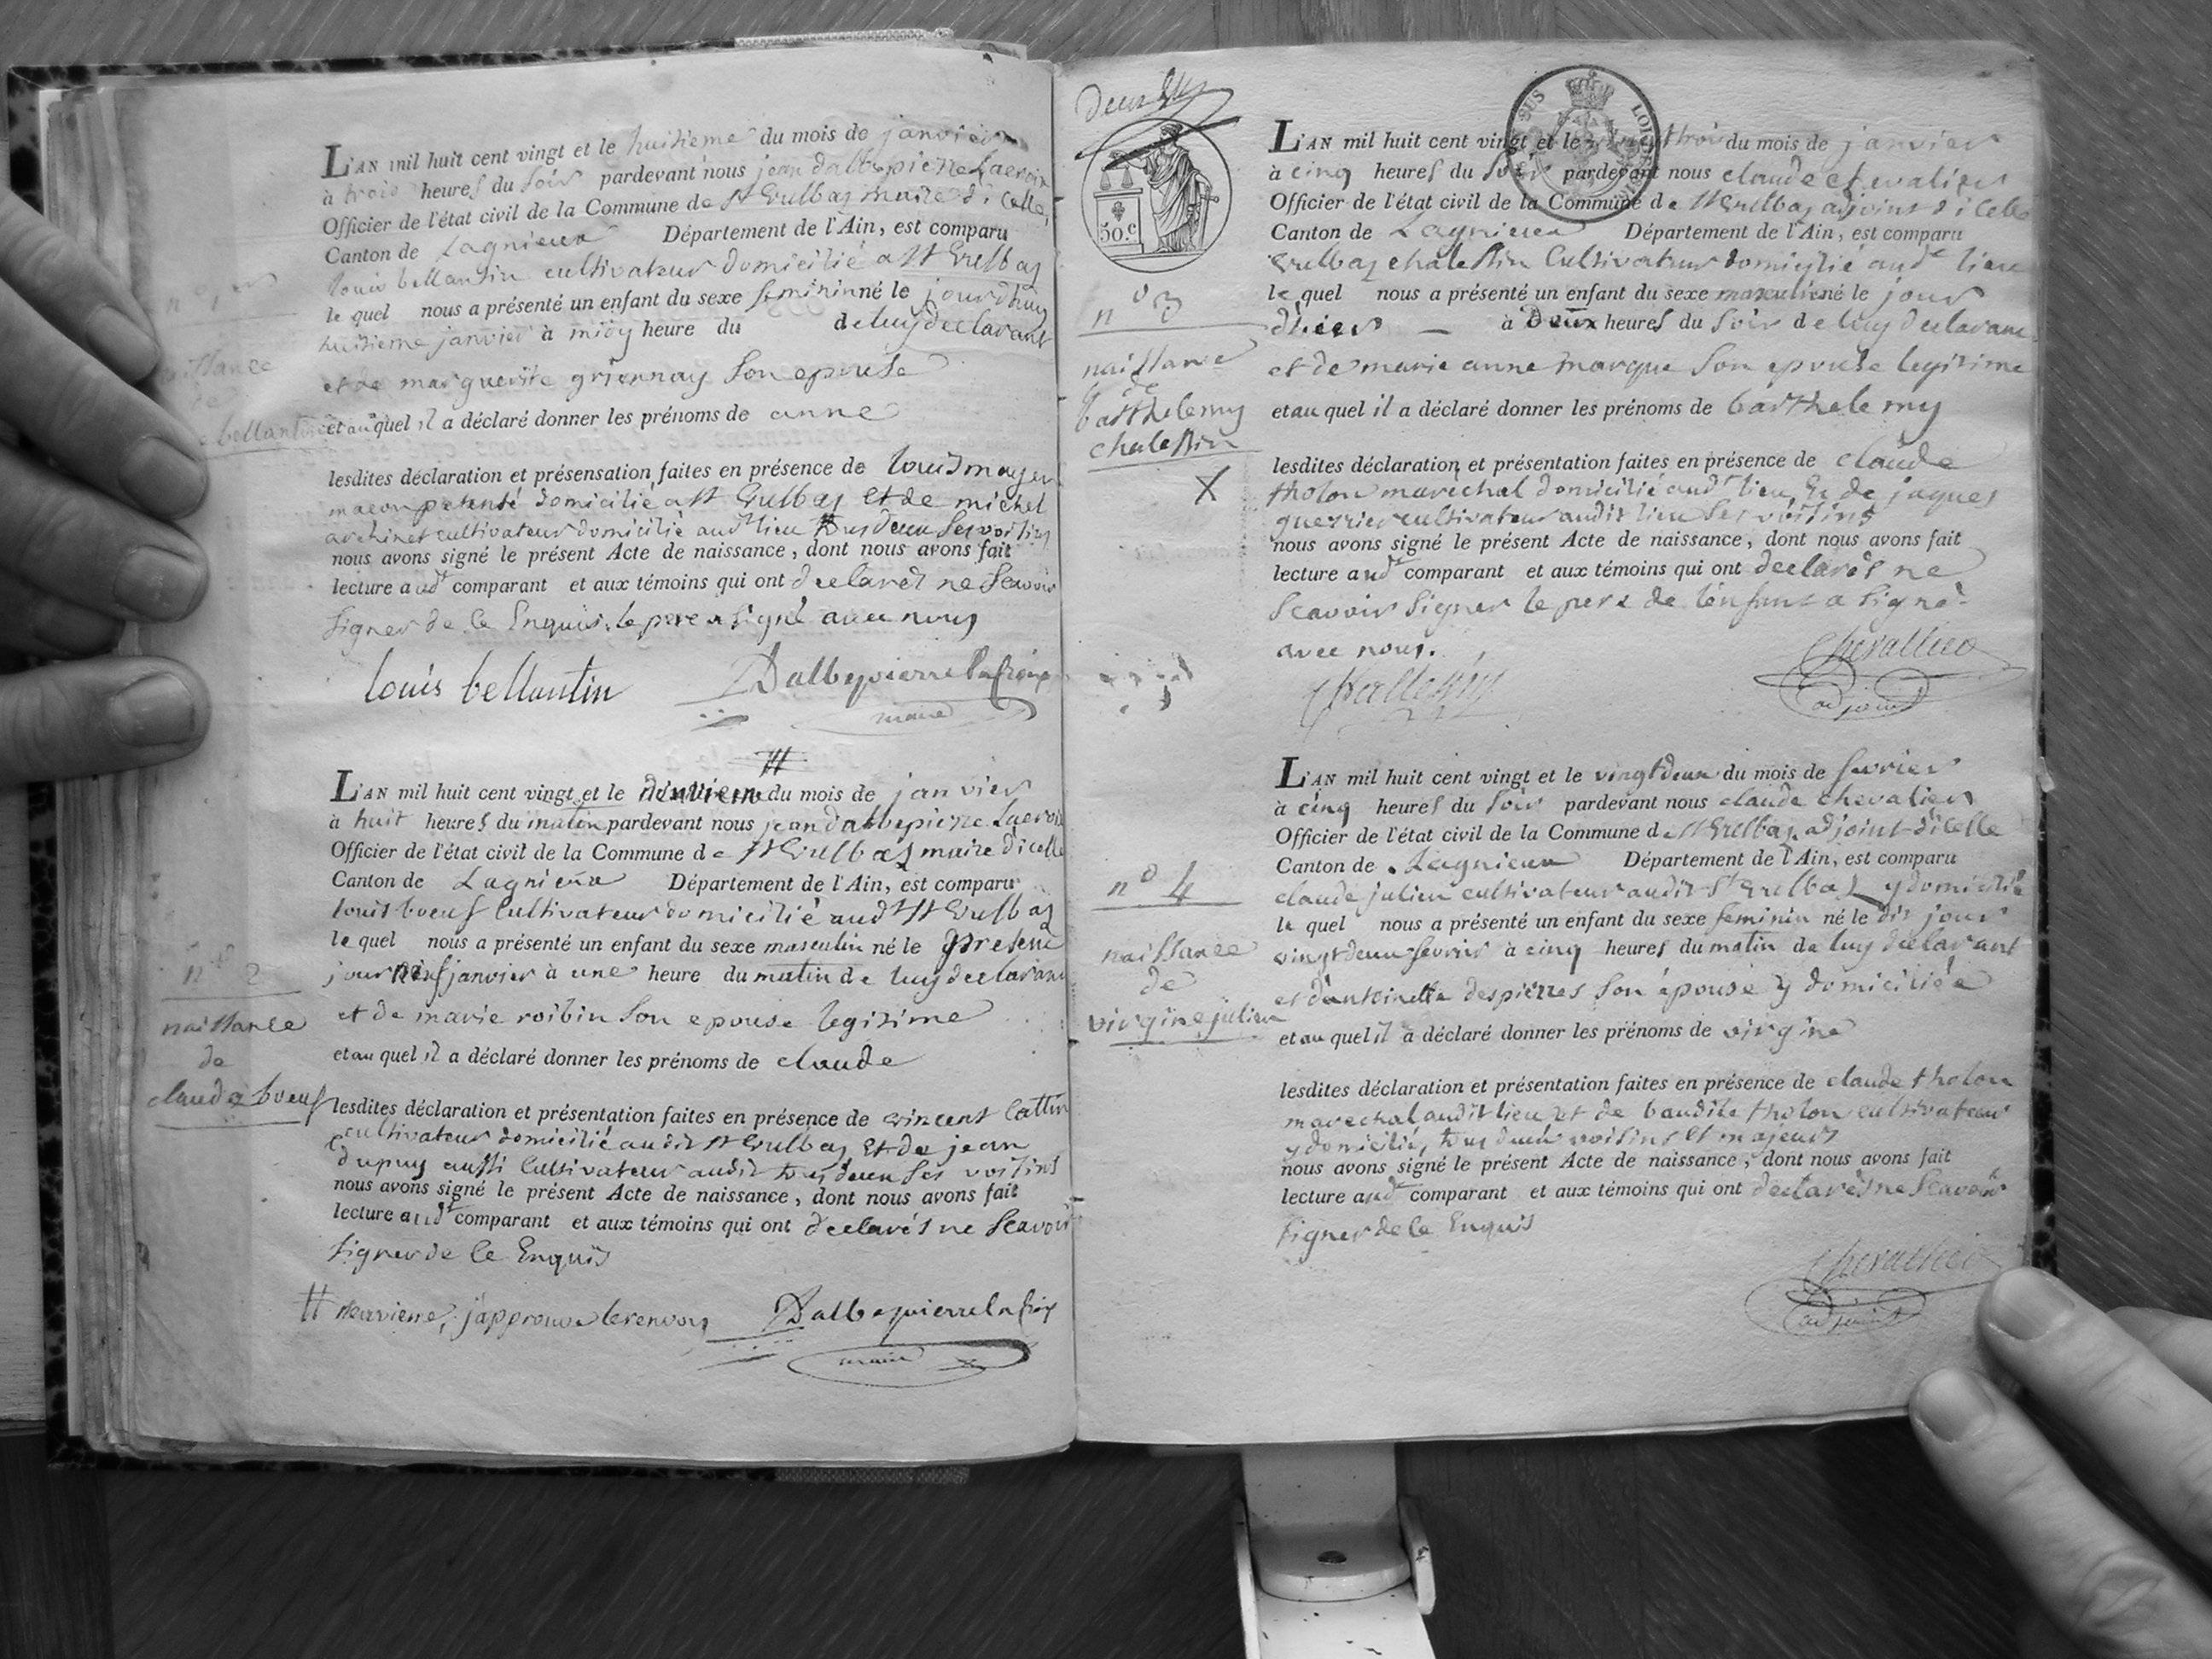 L'AN mil huit cent vingt et le huitieme du mois de janvier
à trois heures du soir pardevant nous jean dalbepierre Lacroix
Officier de l'état civil de la Commune de St Vulbas maire d'icelle,
Canton de Lagnieux Département de l'Ain, est comparu
louis bellantin cultivateur domicilié a St Vulbas
le quel nous a présenté un enfant du sexe feminin né le jourdhuy
huitieme janvier à midy heure du de luy declarant
et de marguerite griennay son epouse
et au quel il a déclaré donner les prénoms de anne
lesdites déclaration et présensation faites en présence de louis mayen
macon patenté domicilié a St Vulbas et de michel
archinet cultivateur domicilié audt lieu tous deux ses voisins
nous avons signé le présent Acte de naissance, dont nous avons fait
lecture audt comparant et aux témoins qui ont declarés ne scavoir
signer de ce Enquis. le pere a signé avec nous
louis bellantin Dalbepierre lacroix
maire
n° 1er
bellantin
L'AN mil huit cent vingt et le du mois de janvier
à huit heures du matin pardevant nous jean dalbepierre Lacroix
Officier de l'état civil de la Commune de St Vulbas maire d'icelle
Canton de Lagnieux Département de l'Ain, est comparu
louis boeuf Cultivateur domicilié audt St Vulbas
le quel nous a présenté un enfant du sexe masculin né le present
jour neuf janvier à une heure du matin de luy declarant
et de marie roibin son epouse legitime
et au quel il a déclaré donner les prénoms de claude
lesdites déclaration et présentation faites en présence de vincent Cattin
cultivateur domicilié audit St Vulbas Et de jean
dupuy aussi Cultivateur audit tous deux ses voisins
nous avons signé le présent Acte de naissance, dont nous avons fait
lecture audt comparant et aux témoins qui ont declarés ne scavoir
signer de ce Enquis
# neuvieme, j'approuve le renvoy Dalbepierre lacroix
maire
n° 2
naissance
de
claude boeuf
50.c
n° 3
naissance
de
barthelemy
chalessin
X
L'AN mil huit cent vingt et le vingt trois du mois de janvier
à cinq heures du soir pardevant nous claude chevalier
Officier de l'état civil de la Commune de St Vulbas adjoint d'icelle
Canton de Lagnieux Département de l'Ain, est comparu
Vulbas chalessin Cultivateur domicilié audt lieu
le quel nous a présenté un enfant du sexe masculin né le jour
d'hier — à Deux heures du soir de luy declarant
et de marie anne marque son epouse legitime
et au quel il a déclaré donner les prénoms de barthelemy
lesdites déclaration et présentation faites en présence de claude
tholon marechal domicilié audt lieu, Et de jaques
guerrier cultivateur audit lieu ses voisins
nous avons signé le présent Acte de naissance, dont nous avons fait
lecture audt comparant et aux témoins qui ont declarés ne
scavoir signer le pere de l'enfant a signé
avec nous.
Challessin Chevallier
adjoint
L'AN mil huit cent vingt et le vingt deux du mois de fevrier
à cinq heures du soir pardevant nous claude chevalier
Officier de l'état civil de la Commune de St Vulbas, adjoint d'icelle
Canton de Lagnieux Département de l'Ain, est comparu
claude julien cultivateur audit St Vulbas y domicilié
le quel nous a présenté un enfant du sexe feminin né le dit jour
vingt deux fevrier à cinq heures du matin de luy declarant
et d'antoinette despierres son épouse y domiciliée
et au quel il a déclaré donner les prénoms de virgine
lesdites déclaration et présentation faites en présence de claude tholon
marechal audit lieu et de baudile tholon cultivateur
y domicilié, tous deux voisins et majeurs
nous avons signé le présent Acte de naissance, dont nous avons fait
lecture audt comparant et aux témoins qui ont declarés ne scavoir
signer de ce Enquis
Chevallier
adjoint
n° 4
naissance
de
virgine julien